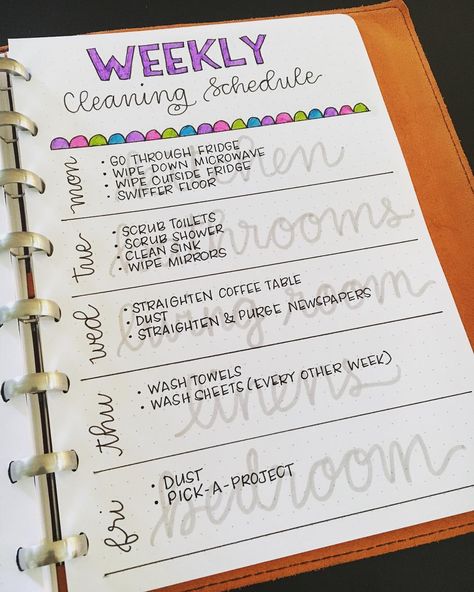 WEEKLY
Cleaning Schedule
mon
kitchen
• GO THROUGH FRIDGE
• WIPE DOWN MICROWAVE
• WIPE OUTSIDE FRIDGE
• SWIFFER FLOOR
tue
bathrooms
• SCRUB TOILETS
• SCRUB SHOWER
• CLEAN SINK
• WIPE MIRRORS
wed
living room
• STRAIGHTEN COFFEE TABLE
• DUST
• STRAIGHTEN & PURGE NEWSPAPERS
thu
linens
• WASH TOWELS
• WASH SHEETS (EVERY OTHER WEEK)
fri
bedroom
• DUST
• PICK-A-PROJECT